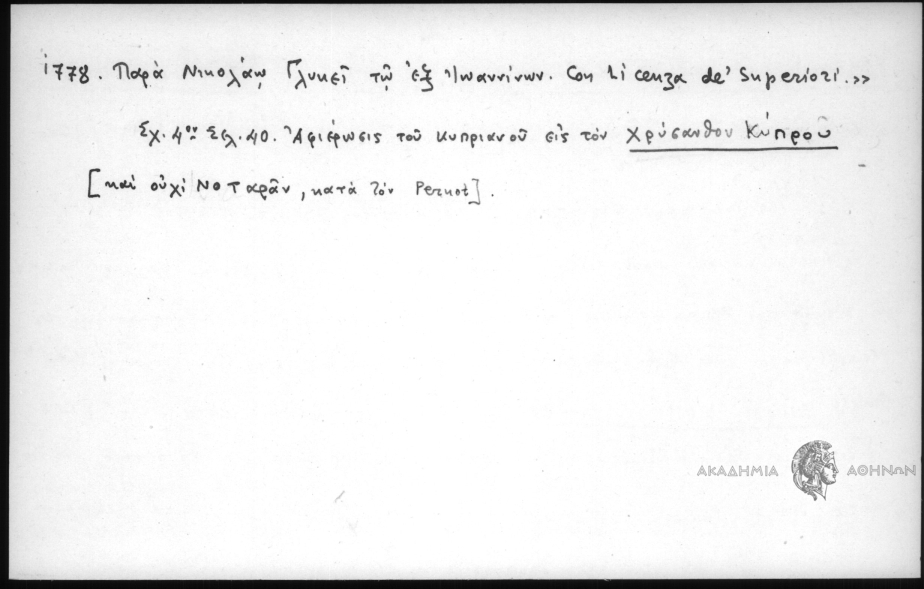 1778. Παρὰ Νικολάῳ Γλυκεῖ τῷ ἐξ Ἰωαννίνων. Con Licenza de' Superiori.»
Σχ. 4ον Σελ. 40. Ἀφιέρωσις τοῦ Κυπριανοῦ εἰς τὸν Χρύσανθον Κύπρου
[καὶ οὐχὶ Νοταρᾶν, κατὰ τὸν Pernot].
ΑΚΑΔΗΜΙΑ ΑΘΗΝΩΝ